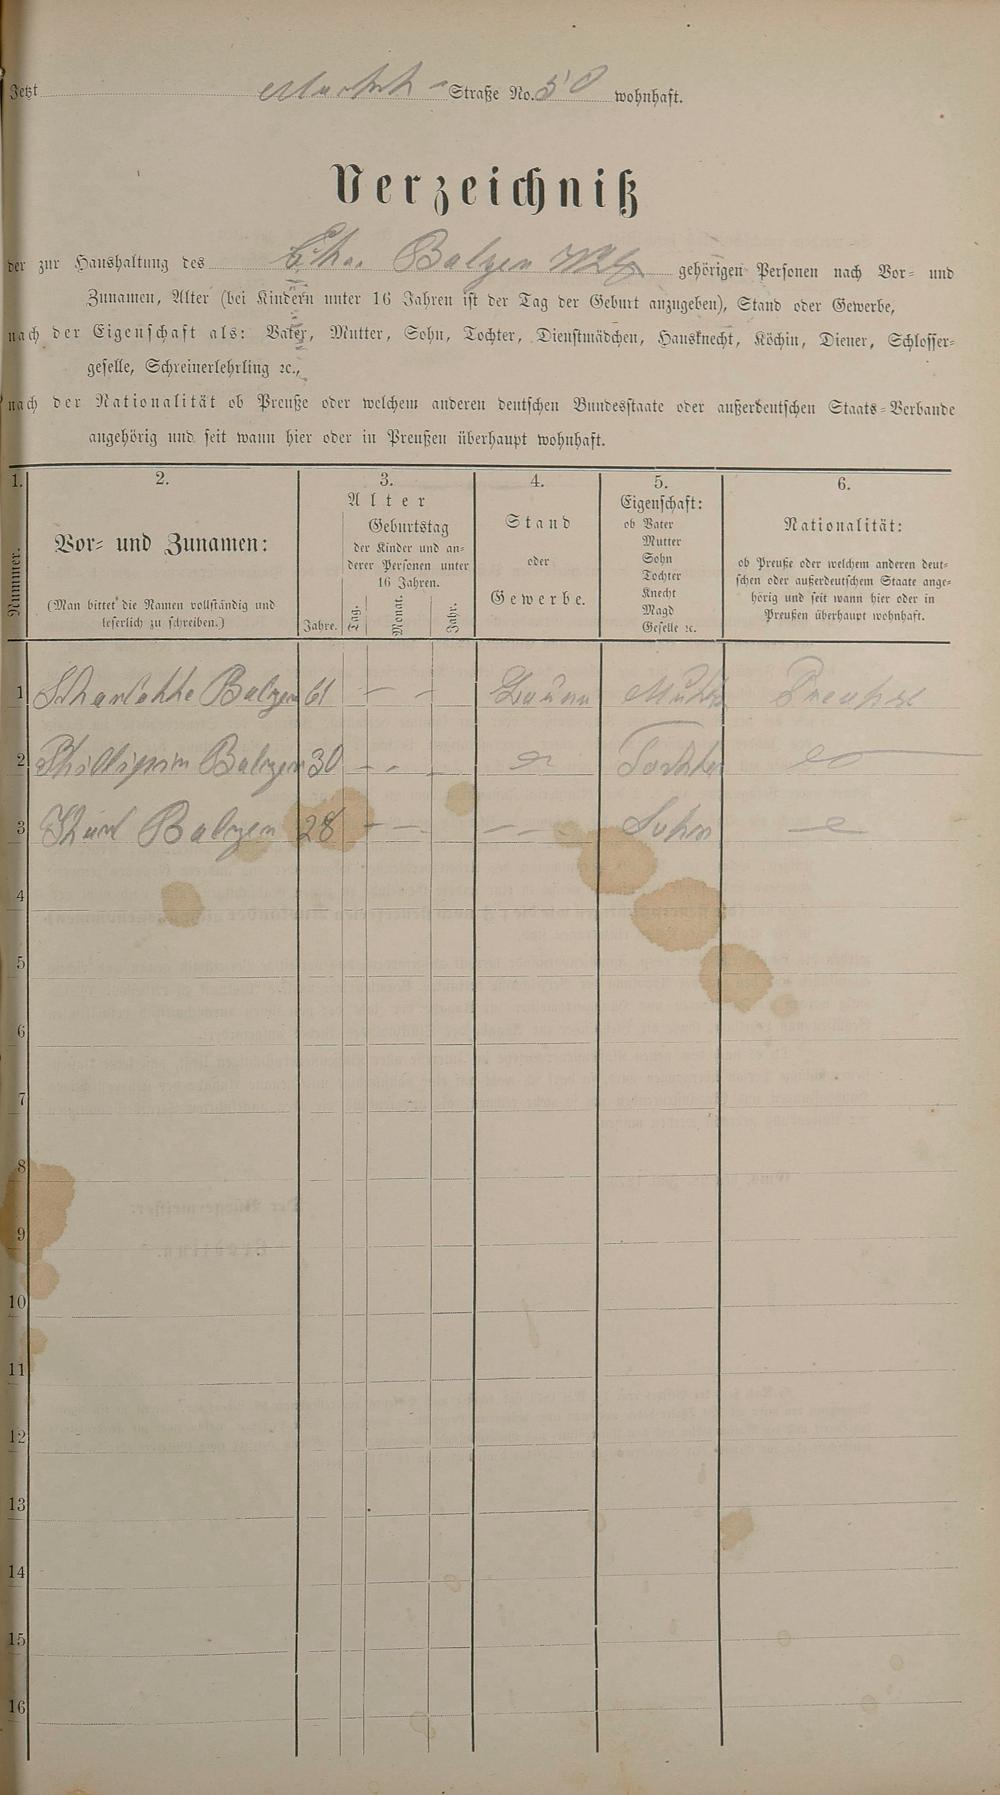 Jetzt Markt-Straße No. 50 wohnhaft.
Verzeichniß
der zur Haushaltung des Chr. Balzen Wtb gehörigen Personen nach Vor- und
Zunamen, Alter (bei Kindern unter 16 Jahren ist der Tag der Geburt anzugeben), Stand oder Gewerbe,
nach der Eigenschaft als: Vater, Mutter, Sohn, Tochter, Dienstmädchen, Hausknecht, Köchin, Diener, Schlosser-
geselle, Schreinerlehrling ꝛc.,
nach der Nationalität ob Preuße oder welchem anderen deutschen Bundesstaate oder außerdeutschen Staats-Verbande
angehörig und seit wann hier oder in Preußen überhaupt wohnhaft.
1. 2. 3. 4. 5. 6.
Nummer.
Vor- und Zunamen:
(Man bittet die Namen vollständig und
leserlich zu schreiben.)
Alter
Jahre.
Geburtstag
der Kinder und an-
derer Personen unter
16 Jahren.
Tag. Monat. Jahr.
Stand
oder
Gewerbe.
Eigenschaft:
ob Vater
Mutter
Sohn
Tochter
Knecht
Magd
Geselle ꝛc.
Nationalität:
ob Preuße oder welchem anderen deut-
schen oder außerdeutschem Staate ange-
hörig und seit wann hier oder in
Preußen überhaupt wohnhaft.
1 Scharlotte Balzen 61 — — Mutter Preuße
2 Phillipin Balzen 30 — - — Tochter
3 Karl Balzen 28 — — — — Sohn
4
5
6
7
8
9
10
11
12
13
14
15
16